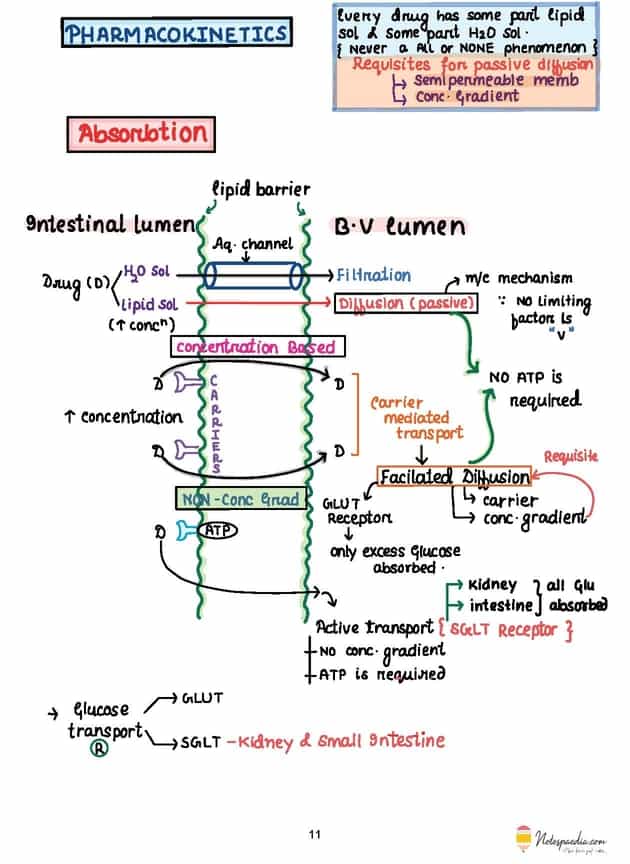 PHARMACOKINETICS
Every drug has some part lipid
sol & some part H2O Sol.
{ Never a All or NONE phenomenon }
Requisites for passive diffusion
Semipermeable memb
Conc. Gradient
Absorbtion
lipid barrier
Intestinal lumen
B.V lumen
Aq. channel
Drug (D)
H2O Sol
Filtration
m/c mechanism
Lipid sol
Diffusion (passive)
∵ NO limiting
factor is
"V"
(↑ concⁿ)
Concentration Based
D
D
NO ATP is
required
CARRIERS
↑ Concentration
Carrier
mediated
transport
D
D
Requisite
Facilated Diffusion
carrier
conc. gradient
NON-Conc Grad
GLUT
Receptor
only excess Glucose
absorbed.
D
ATP
Kidney
intestine
all Glu
absorbed
Active transport { SGLT Receptor }
NO conc. gradient
ATP is required
→ Glucose
transport
R
GLUT
SGLT - Kidney & Small Intestine
11
Notespaedia.com